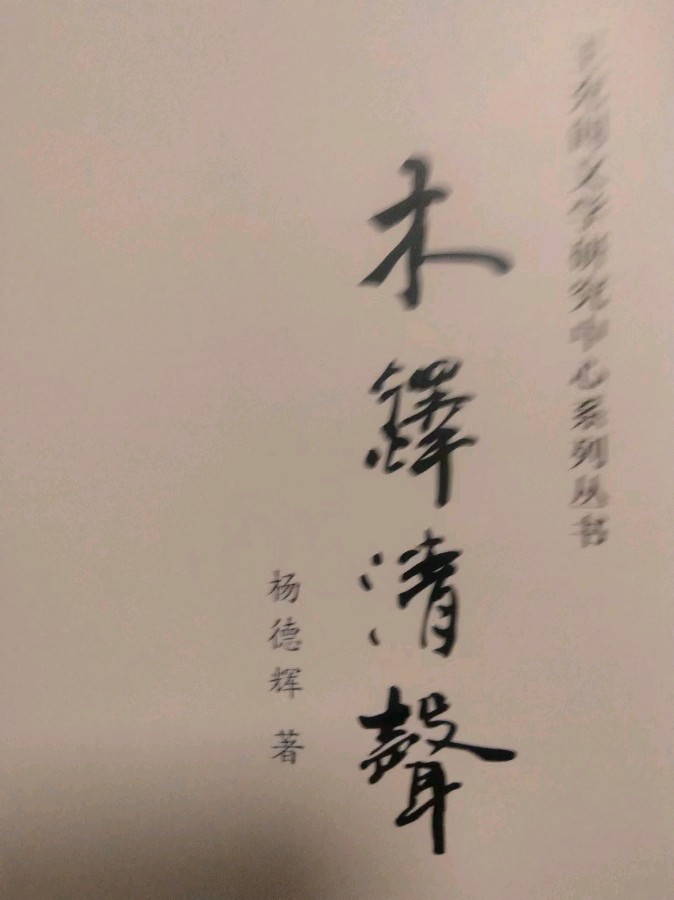 文学研究中心系列丛书
木鐸清聲
杨德辉 著